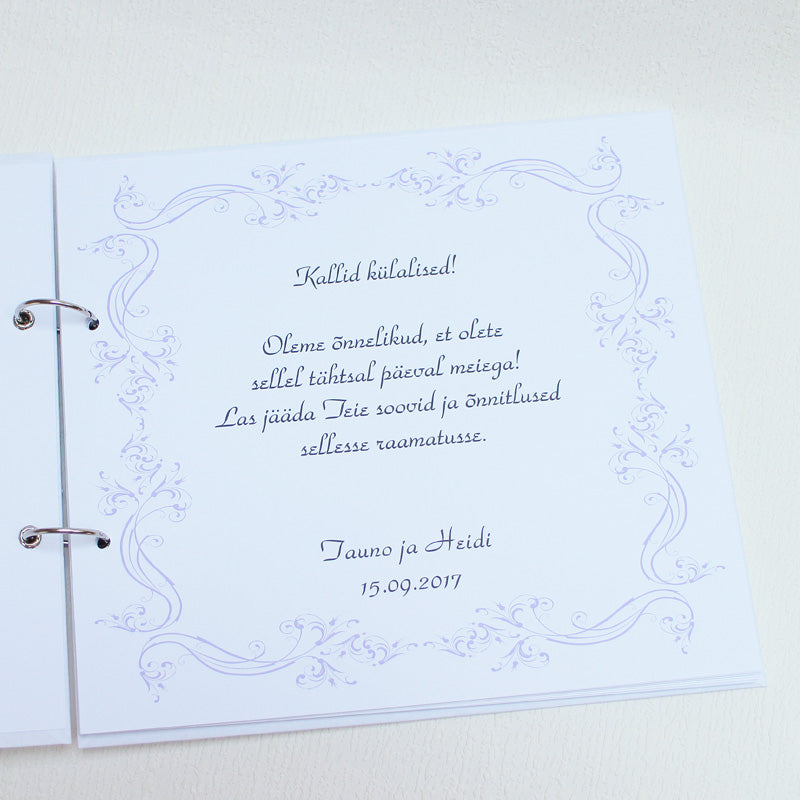 Kallid külalised!
Oleme õnnelikud, et olete
sellel tähtsal päeval meiega!
Las jääda Teie soovid ja õnnitlused
sellesse raamatusse.
Tauno ja Heidi
15.09.2017